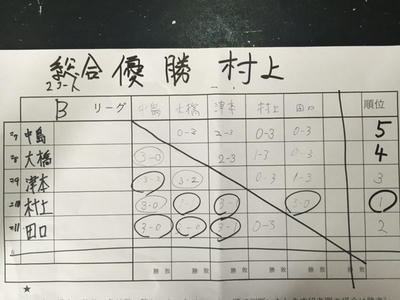 総合優勝 村上
2コート
B リーグ 中島 大橋 津本 村上 田口 順位
27 中島 0-2 2-3 0-3 0-3 5
28 大橋 3-0 2-3 1-3 0-3 4
29 津本 3-2 3-2 0-3 1-3 3
210 村上 3-0 3-0 1
211 田口 3-0 3-1 0-3 2
勝 敗 勝 敗 勝 敗 勝 敗 勝 敗
★